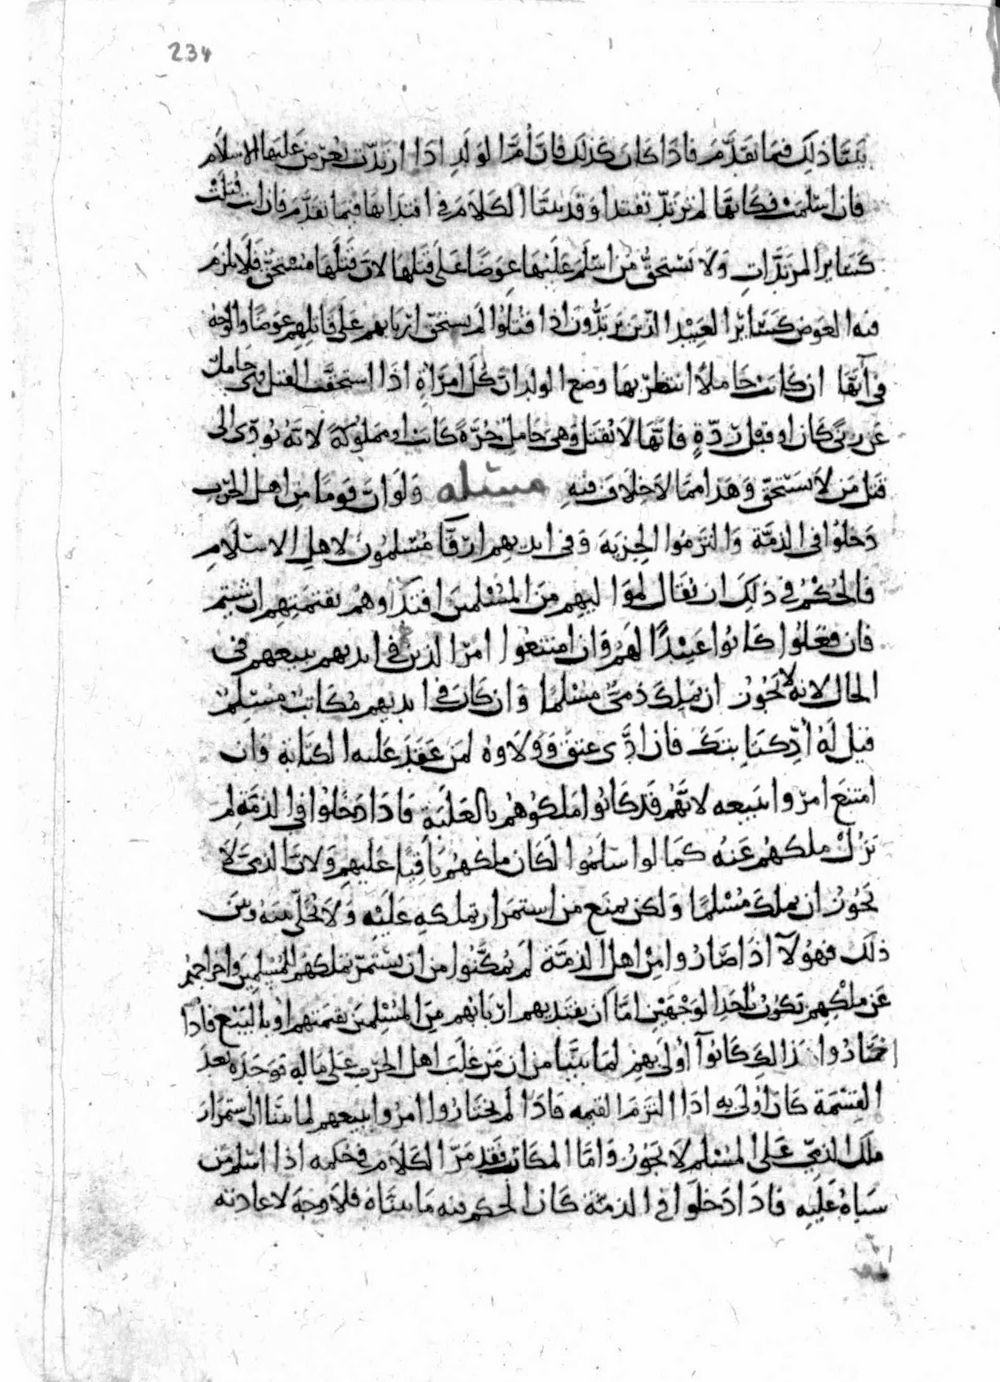 234
بينا ذلك فيما تقدم فاذا كان كذلك فان ام الولد اذا ارتدت يعرض عليها الاسلام
فان اسلمت فكانها لم ترتد تفتدا وقد بينا الكلام في افتدابها فيما تقدم فان ابت قتلت
كسائر المرتدات ولا يستحق من اسلم عليها عوضا على قتلها لان قتلها مستحق فلا يلزم
فيه العوض كسائر العبيد الذين يرتدون اذا قتلوا لم يستحق اربابهم على قاتلهم عوضا والوجه
في انها ان كانت حاملا انتظر بها وضع الولد ان كل امراة اذا استحقت القتل وهي حامل
عن زنى كان او قبل ردة فانها لا تقتل وهي حامل حرة كانت او مملوكة لانه يؤدى الى
قتل من لا يستحق وهذا مما لا خلاف فيه مسئله ولو ان قوما من اهل الحرب
دخلوا في الذمة والتزموا الجزية وفي ايديهم ارقا مسلمون لاهل الاسلام
فالحكم في ذلك ان يقال لمواليهم من المسلمين افتدوهم بقيمتهم ان شيتم
فان فعلوا كانوا عبيدا لهم وان امتنعوا امر الذين في ايديهم ببيعهم في
الحال لانه لا يجوز ان يملك ذمي مسلما وان كان في ايديهم مكاتب مسلم
قيل له اد كتابتك فان ادى عتق وولاوه لمن عقد عليه الكتابة وان
امتنع امروا ببيعه لانهم قد كانوا ملكوهم بالغلبة فاذا دخلوا في الذمة لم
يزل ملكهم عنه كما لو اسلموا لكان ملكهم باقيا عليهم ولان الذمي لا
يجوز ان يملك مسلما ولكن يمنع من استمرار تملكه عليه ولا يخلى بينه وبين
ذلك فهولآ اذا صاروا من اهل الذمة لم يمكنوا من ان يستمر تملكهم للمسلمين واخراجهم
عن ملكهم يكون باحد الوجهين اما ان يفتديهم اربابهم من المسلمين بقيمتهم او بالبيع فاذا
اختاروا ذالك كانوا اولى بهم لما بينا من ان من غلب اهل الحرب على ماله فوجده بعد
القسمة كان اولى به اذا التزم القيمه فاذا لم يختاروا امروا ببيعهم لما بينا ان استمرار
ملك الذمي على المسلم لا يجوز واما المكاتب فقد مر الكلام في حكمه اذا اسلم من
سباه عليه فاذا دخلوا في الذمة كان الحكم فيه ما بيناه فلا وجه لاعادته